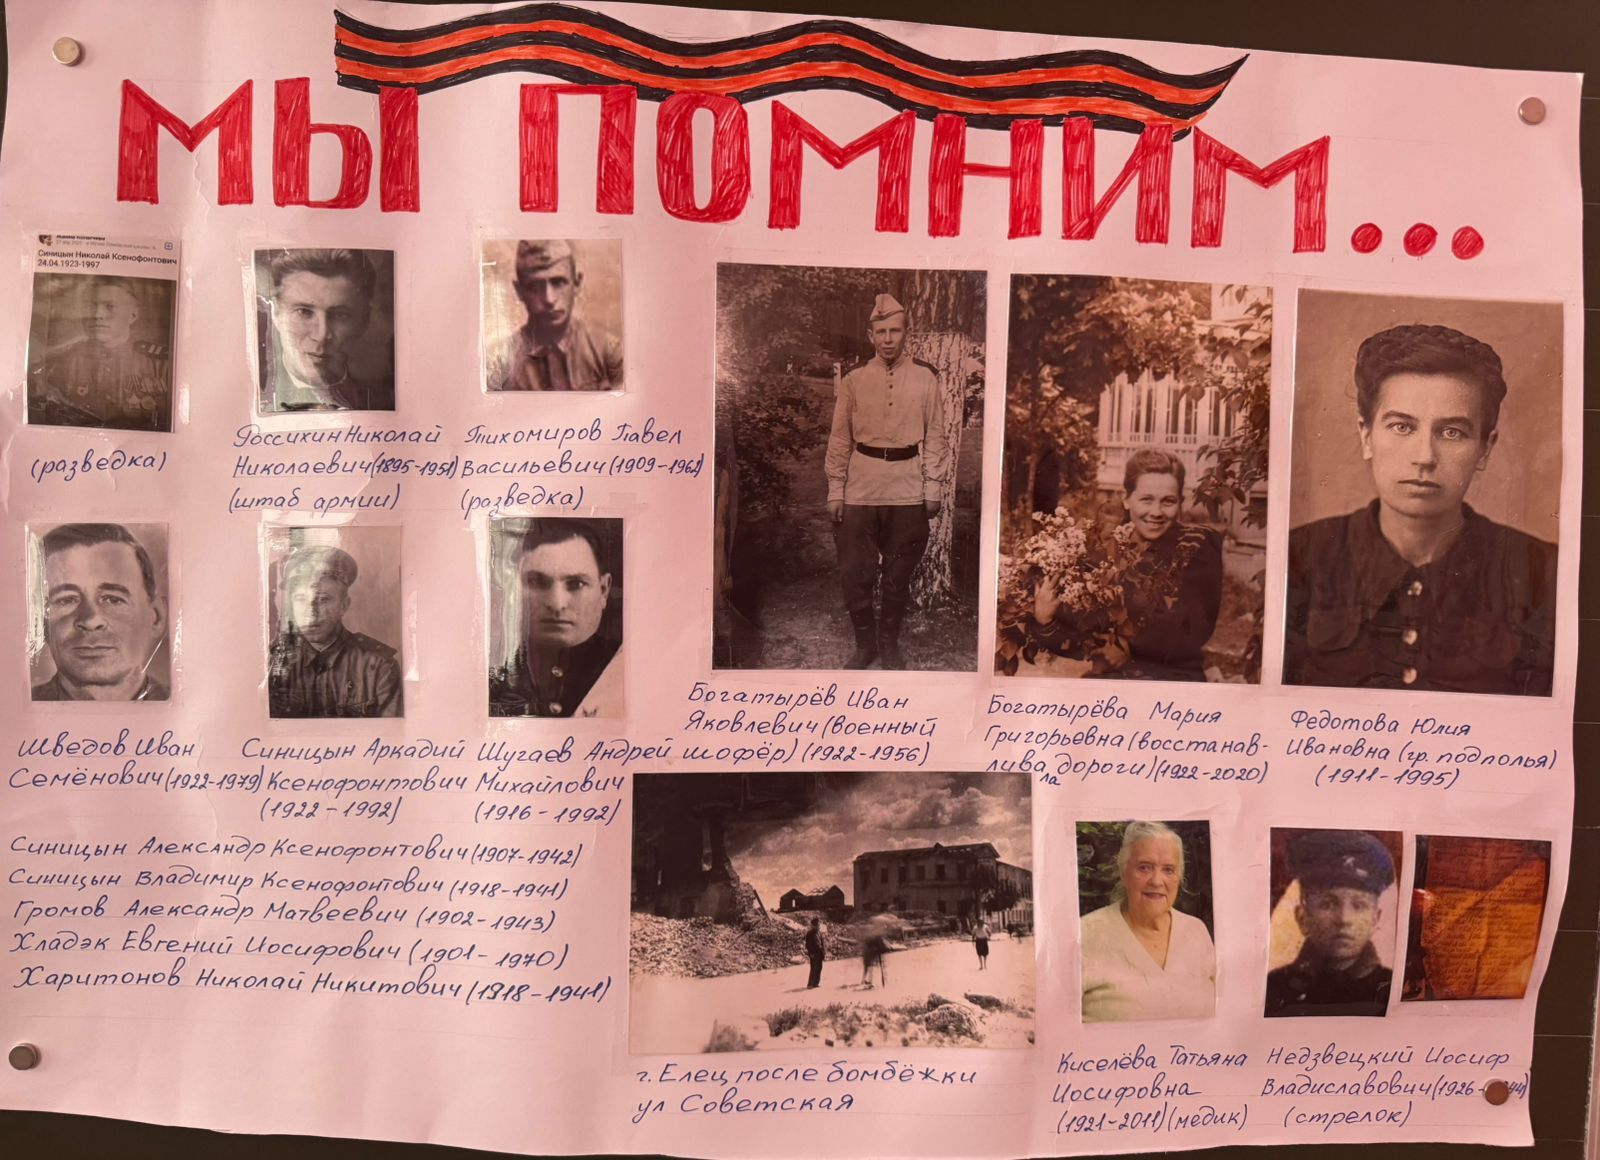 МЫ ПОМНИМ...
27 апр 2021
Синицын Николай Ксенофонтович
24.04.1923-1997
(разведка)
Россихин Николай
Николаевич (1895-1951)
(штаб армии)
Тихомиров Павел
Васильевич (1909-1962)
(разведка)
Шведов Иван
Семёнович (1922-1979)
Синицын Аркадий
Ксенофонтович
(1922-1992)
Шугаев Андрей
Михайлович
(1916-1992)
Богатырёв Иван
Яковлевич (военный
шофёр) (1922-1956)
Богатырёва Мария
Григорьевна (восстанав-
лива дороги) (1922-2020)
ла
Федотова Юлия
Ивановна (гр. подполья)
(1911-1995)
Синицын Александр Ксенофонтович (1907-1942)
Синицын Владимир Ксенофонтович (1918-1941)
Громов Александр Матвеевич (1902-1943)
Хладэк Евгений Иосифович (1901-1970)
Харитонов Николай Никитович (1918-1941)
г. Елец после бомбёжки
ул Советская
Киселёва Татьяна
Иосифовна
(1921-2011) (медик)
Недзвецкий Иосиф
Владиславович (1926-
(стрелок)